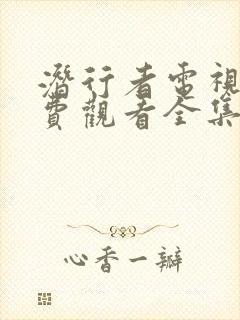 潛行者電視
費觀看全集
心香一瓣